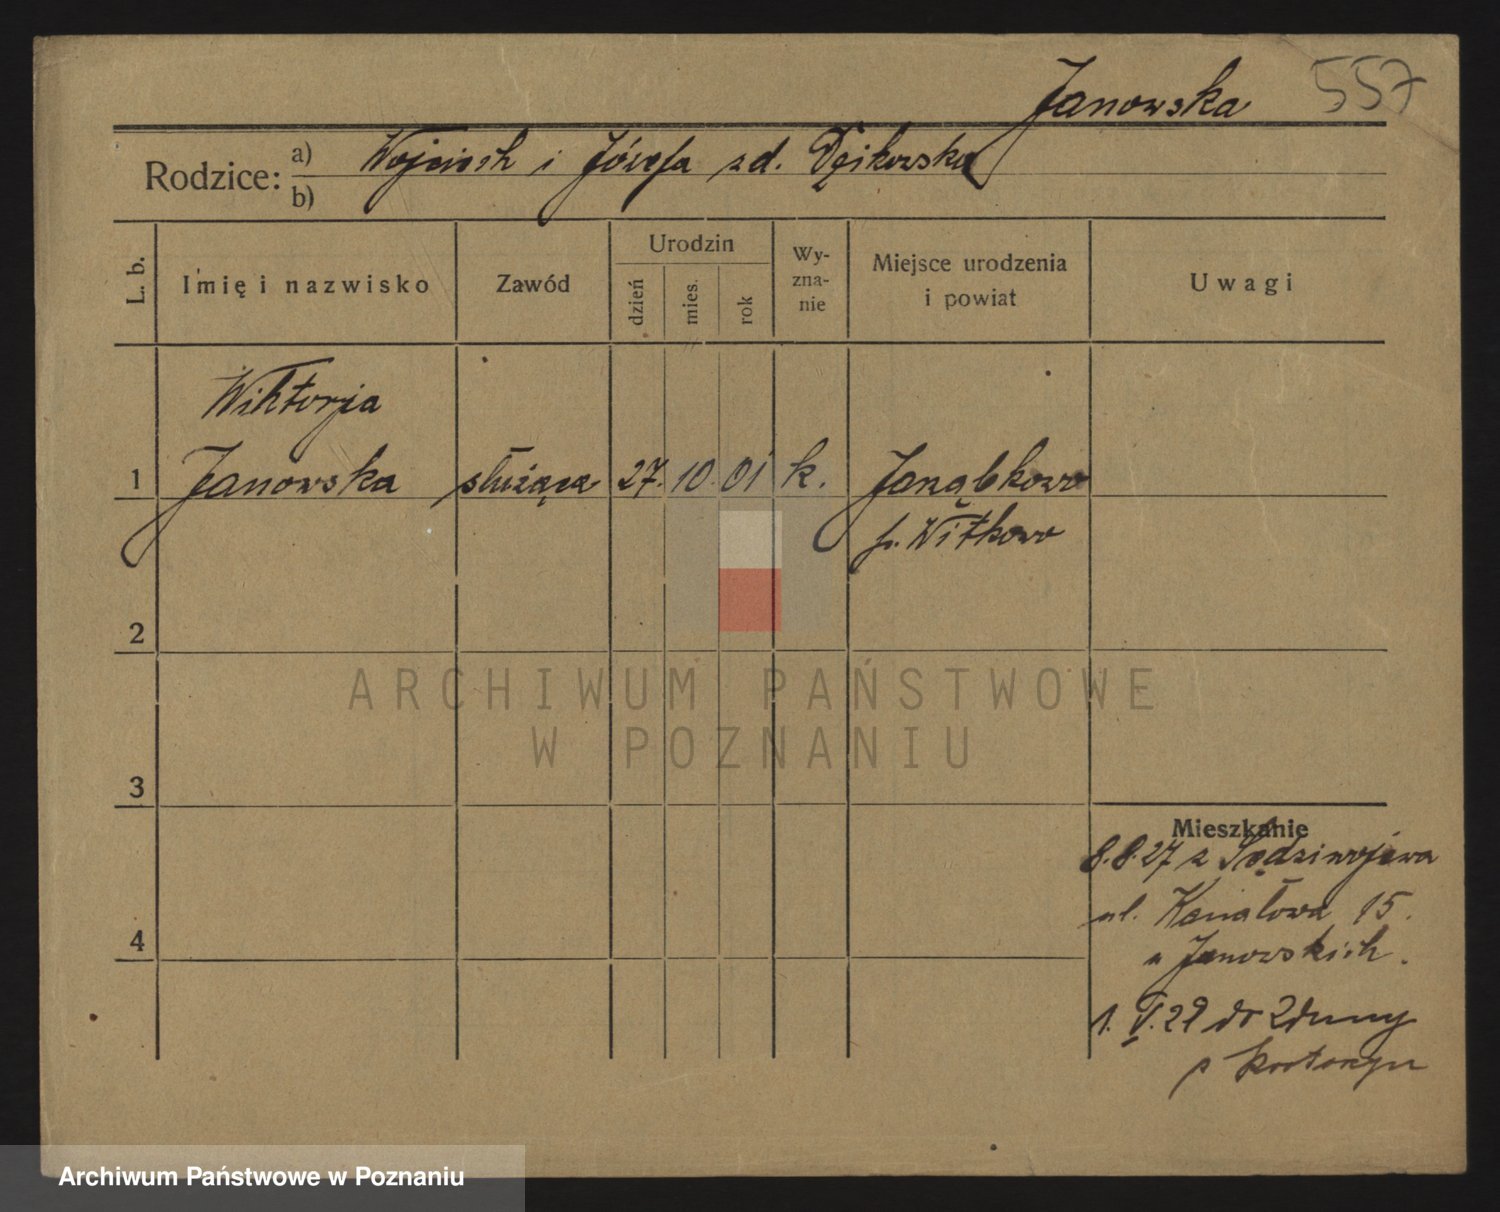 Janowska 557
Rodzice: a) Wojciech i Józefa zd.
b)
L. b.
Imię i nazwisko
Zawód
Urodzin
dzień
mies.
rok
Wy-
zna-
nie
Miejsce urodzenia
i powiat
Uwagi
Wiktorja
1 Janowska służąca 27. 10. 01 k.
p. Witkowo
2
ARCHIWUM PAŃSTWOWE
W POZNANIU
3
Mieszkanie
8.8.27 z Sędziwojewa
ul. Kanałowa 15.
u Janowskich.
4
1. V. 29 do Zduny
p Krotoszyn
Archiwum Państwowe w Poznaniu